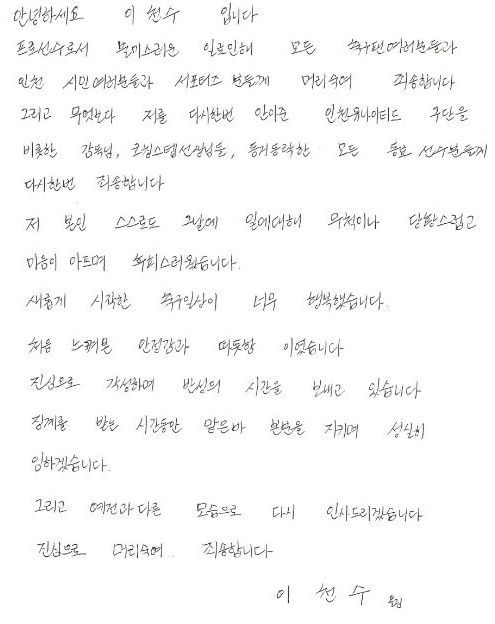 안녕하세요 이천수 입니다
프로선수로서 불미스러운 일로인해 모든 축구팬여러분들과
인천 시민여러분들과 서포터즈 분들께 머리숙여 죄송합니다
그리고 무엇보다 저를 다시한번 안아준 인천유나이티드 구단을
비롯한 감독님, 코칭스텝선생님들, 동거동락한 모든 동료 선수분들께
다시한번 죄송합니다
저 본인 스스로도 그날에 일에대해 무척이나 당황스럽고
마음이 아프며 후회스러웠습니다.
새롭게 시작한 축구일상이 너무 행복했습니다.
처음 느껴본 안정감과 따뜻함 이였습니다
진심으로 각성하며 반성의 시간을 보내고 있습니다
징계를 받는 시간동안 맡은바 본분을 지키며 성실히
임하겠습니다.
그리고 예전과다른 모습으로 다시 인사드리겠습니다
진심으로 머리숙여. 죄송합니다
이 천 수 올림